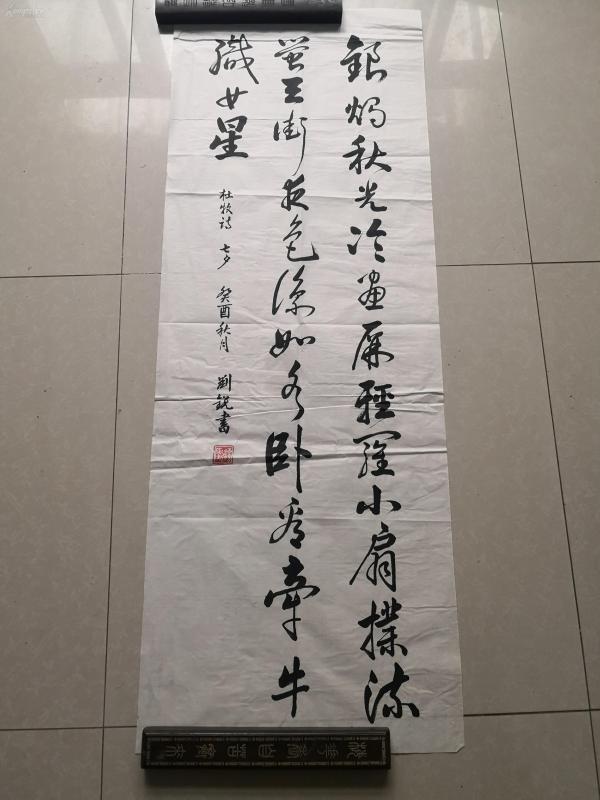 銀燭秋光冷畫屏輕羅小扇撲流
螢天街夜色涼如水卧看牽牛
織女星
杜牧詩 七夕 癸酉秋月 劉銳書